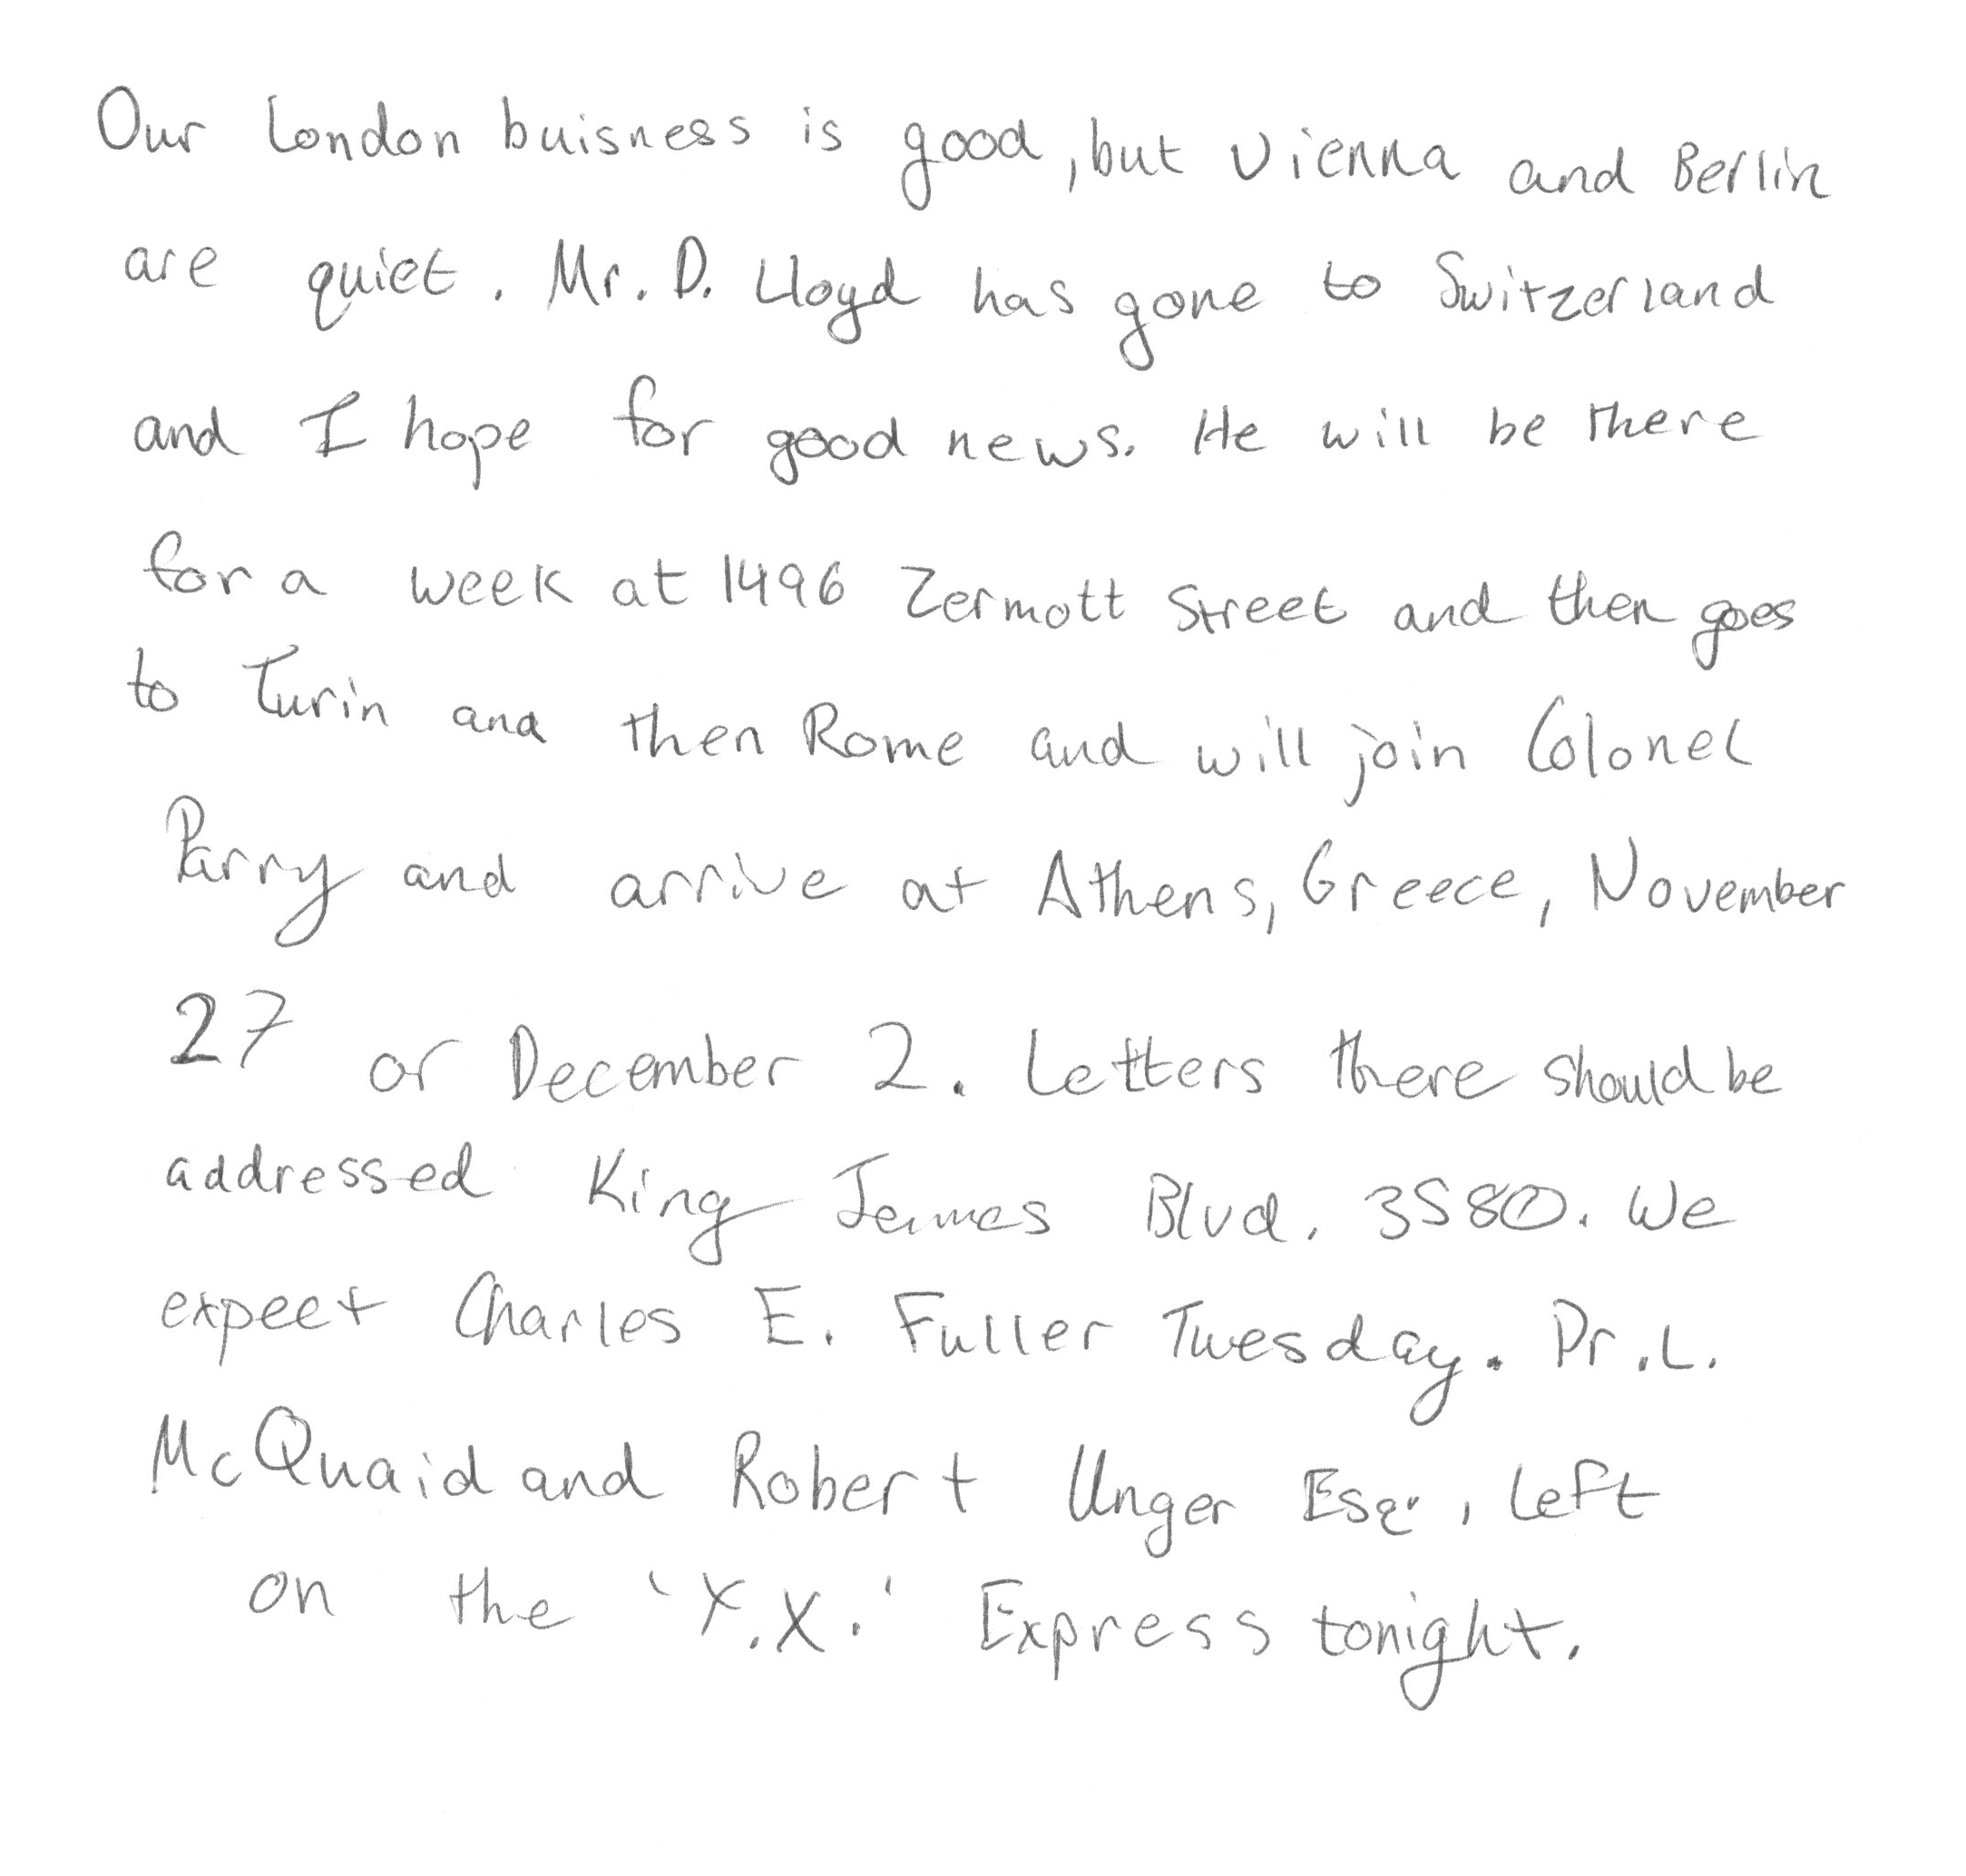 Our London buisness is good, but Vienna and Berlin
are quiet. Mr. D. Lloyd has gone to Switzerland
and I hope for good news. He will be there
for a week at 1496 Zermott Street and then goes
to Turin and then Rome and will join Colonel
Parry and arrive at Athens, Greece, November
27 or December 2. Letters there should be
addressed King James Blvd. 3580. We
expect Charles E. Fuller Tuesday. Dr. L.
McQuaid and Robert Unger Esq., left
on the 'X.X.' Express tonight.